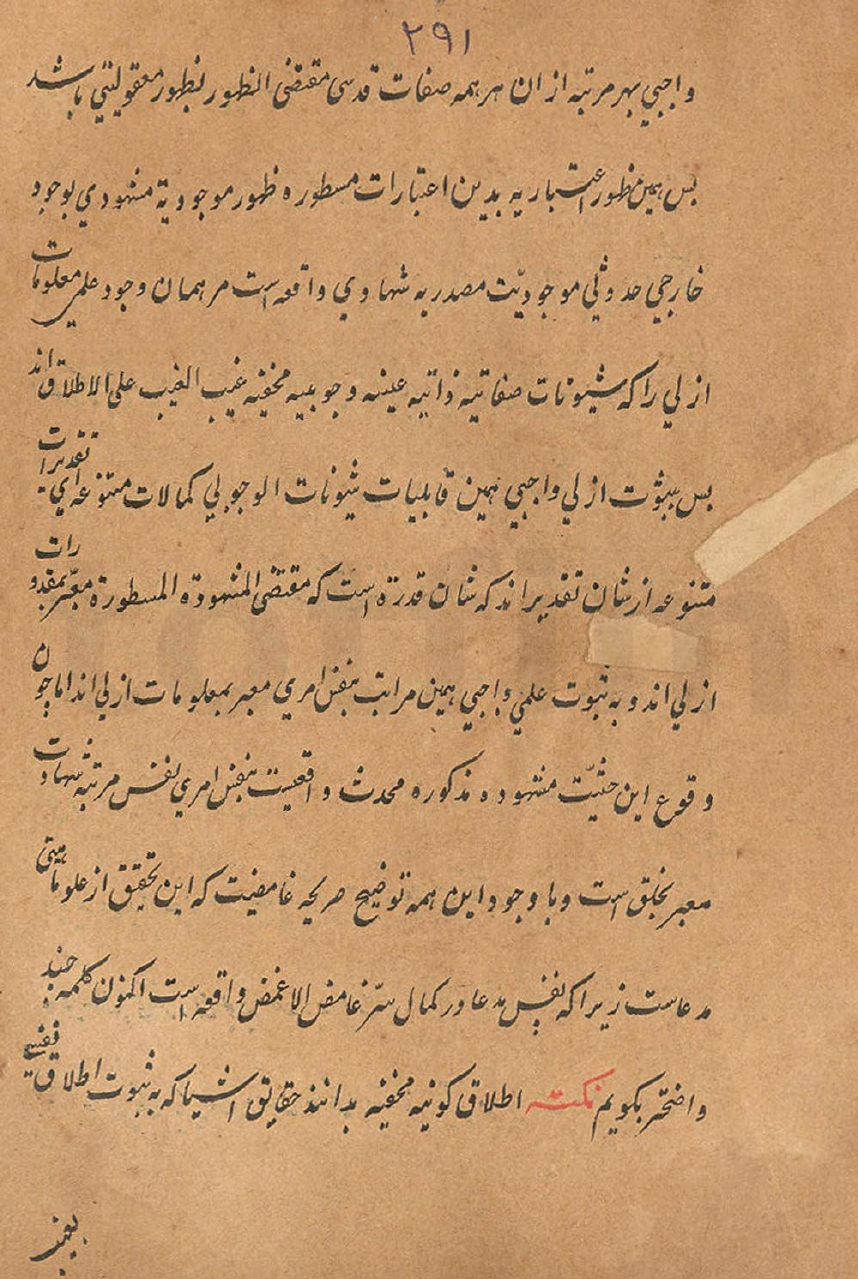 ۲۹۱
واجبي بهر مرتبه از ان هر همه صفات قدسی مقتضی الظهور بظهور معقولیتی باشد
بس همین ظهور اعتباریه بدین اعتبارات مسطوره ظهور موجودیة مشهودي بوجود
خارجي حدوثي موجودیّت مصدریه شهادي واقعه است مر همان وجود علمی معلومات
ازلي را که شیونات صفاتیه ذاتیه عینیه وجوبیه مخفیه غیب الغیب علی الاطلاق اند
بس بثبوت ازلي واجبي همین قابلیات شیونات الوجوبي کمالات متنوعه اي تقدیرات
متنوعه از شان تقدیر اند که شان قدرة است که مقتضی المشهودة المسطورة معبّر بمقدورات
ازلي اند و به ثبوت علمي واجبي همین مراتب بنفس امري معبر بمعلومات ازلي اند اما چون
وقوع این حثیّت مشهوده مذکوره محدث واقعیت بنفس امري نفس مرتبه شهادت
معبر بخلق است و با وجود این همه توضیح صریحه غامضیت که این تحقیق از علو ماهیتی
مدعاست زیرا که نفس مدعا در کمال سرّ غامض الاغمض واقعه است اکنون کلمه چند
واضحتر بکویم نکته اطلاق کونیه مخفیه بدانند حقایق اشیا که به ثبوت اطلاق